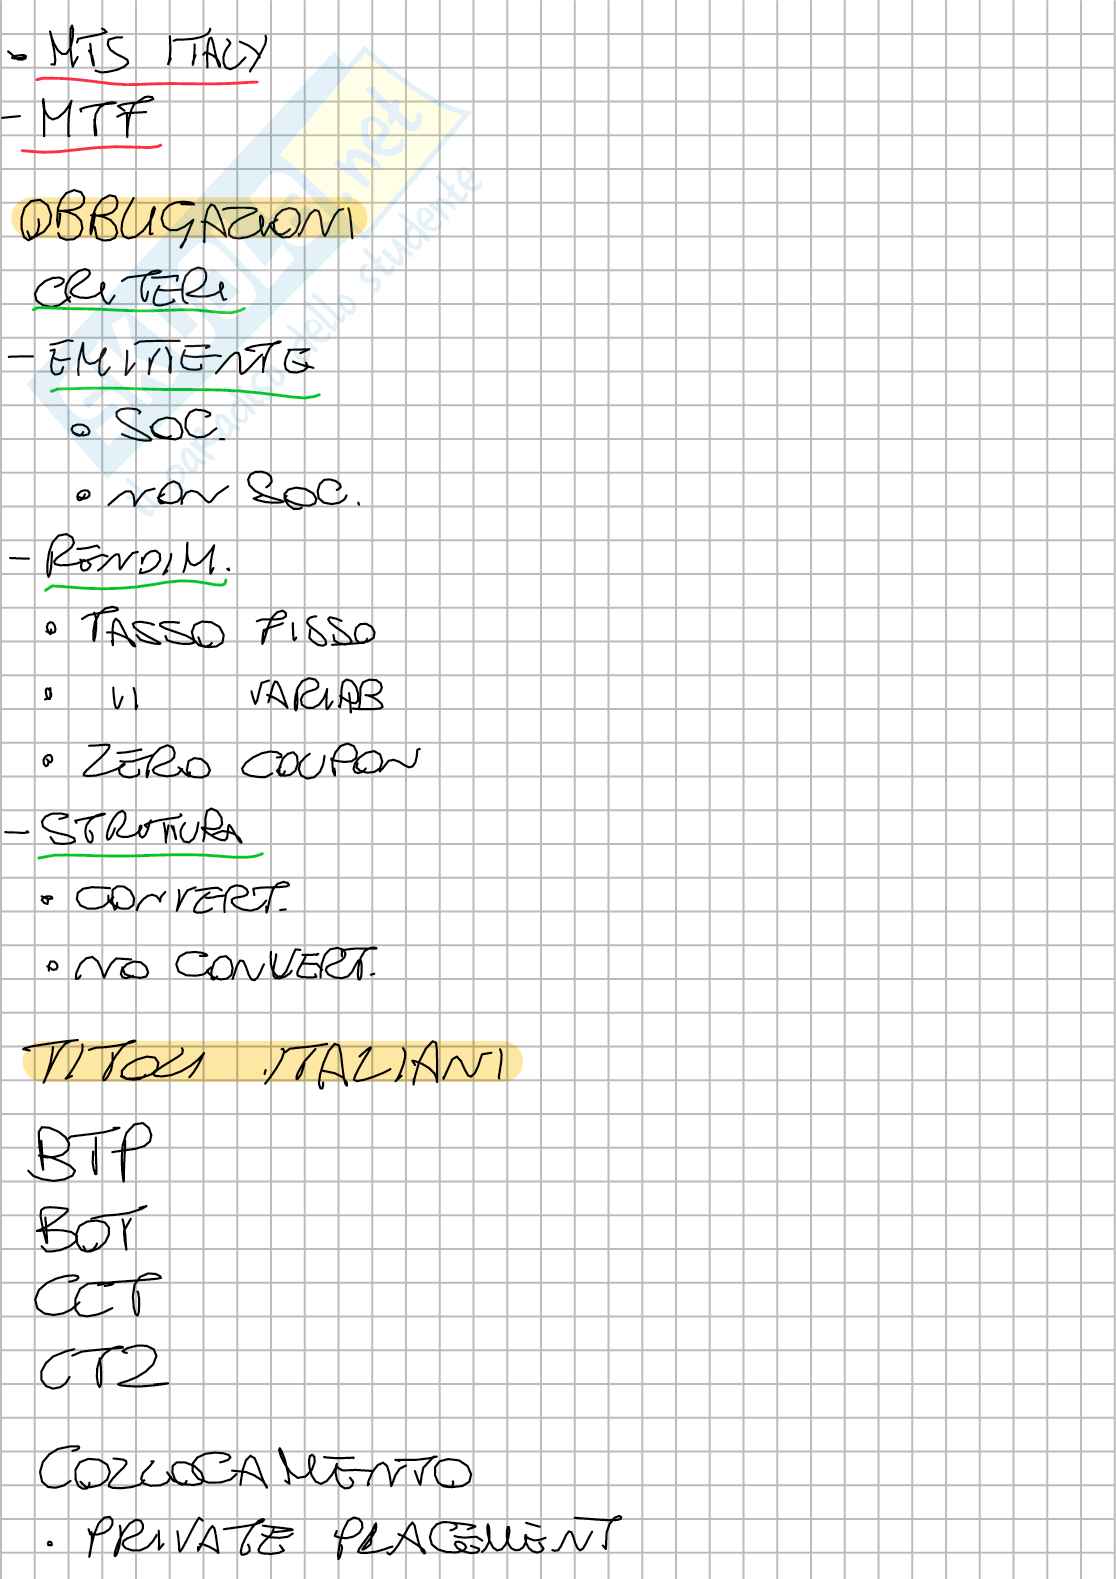 - MTS ITALY
- MTF
OBBLIGAZIONI
CRITERI
- EMITTENTE
• SOC.
• NON SOC.
- RENDIM.
• TASSO FISSO
• " VARIAB
• ZERO COUPON
- STRUTTURA
• CONVERT.
• NO CONVERT.
TITOLI ITALIANI
BTP
BOT
CCT
CTZ
COLLOCAMENTO
• PRIVATE PLACEMENT